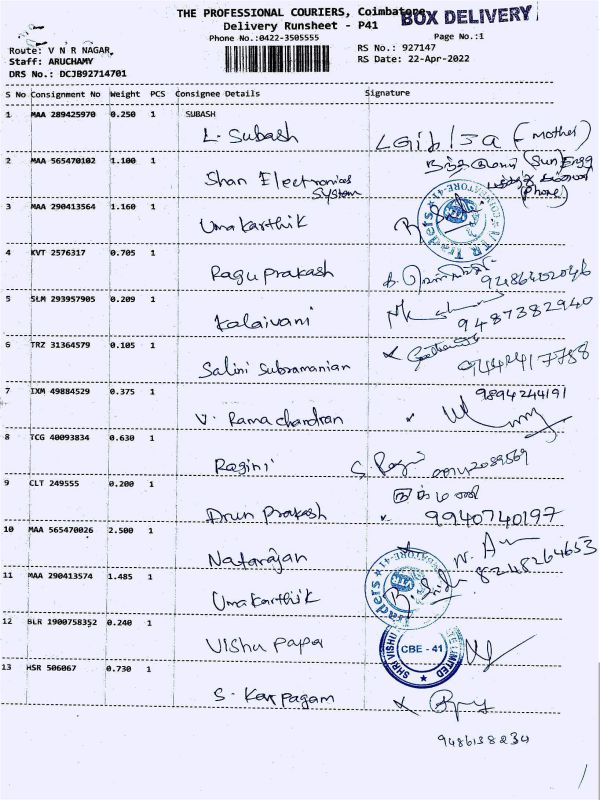 THE PROFESSIONAL COURIERS, Coimbatore
BOX DELIVERY
Delivery Runsheet - P41
Phone No.:0422-3505555
Page No.:1
Route: V N R NAGAR,
RS No.: 927147
Staff: ARUCHAMY
RS Date: 22-Apr-2022
DRS No.: DCJB92714701
S No Consignment No Weight PCS Consignee Details Signature
1 MAA 289425970 0.250 1 SUBASH
L. Subash (Mother)
2 MAA 565470102 1.100 1
Shan Electronics System
(Phone)
3 MAA 290413564 1.160 1
Uma Karthik
VTR Traders COIMBATORE-41
4 KVT 2576317 0.705 1
Ragu prakash
5 SLM 293957905 0.209 1
Kalaivani 9487382940
6 TRZ 31364579 0.105 1
Salini Subramanian
7 IXM 49884529 0.375 1 9894244191
V. Rama chandran
8 TCG 40093834 0.630 1
Ragini
9 CLT 249555 0.200 1
Arun Prakash 9940740197
10 MAA 565470026 2.500 1
Natarajan 8248264653
11 MAA 290413574 1.485 1
Uma Karthik
Traders COIMBATORE-41
12 BLR 1900758352 0.240 1
Vishu Papa
SHRI VISHU LIMITED
CBE - 41
13 HSR 506067 0.730 1
S. Karpagam
9486138234